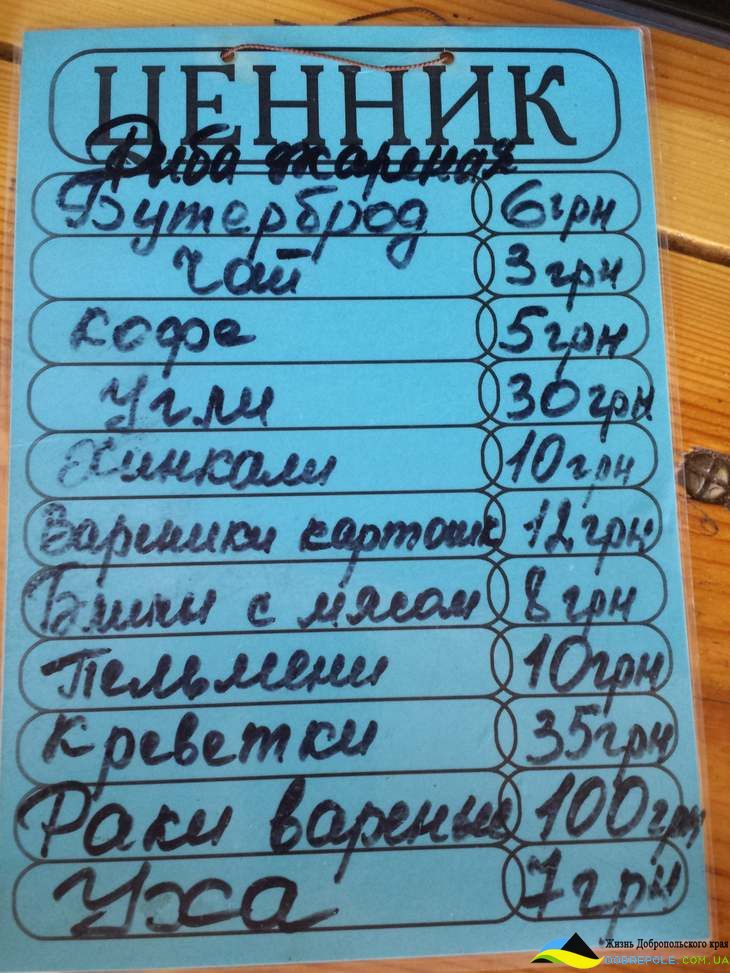 ЦЕННИК
Риба жареная
Бутерброд 6 грн
Чай 3 грн
кофе 5 грн
Угли 30 грн
Хинкали 10 грн
Вареники картошк 12 грн
Блины с мясом 8 грн
Пельмени 10 грн
Креветки 35 грн
Раки вареные 100 грн
Уха 7 грн
Жизнь Добропольского края
DOBREPOLE.COM.UA